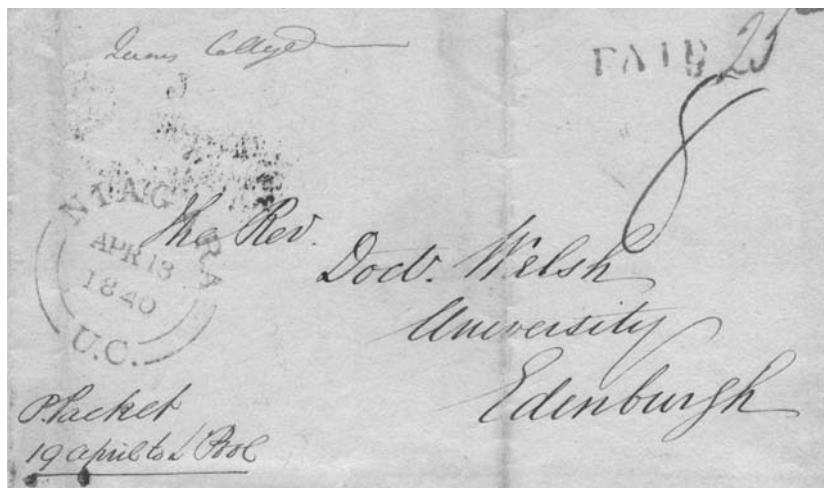 Queens College
PAID 25
8
NIAGARA
APR 13
1840
U.C.
The Rev.
Doctr. Welsh
University
Edenburgh
P. Packet
19 april to L'Pool